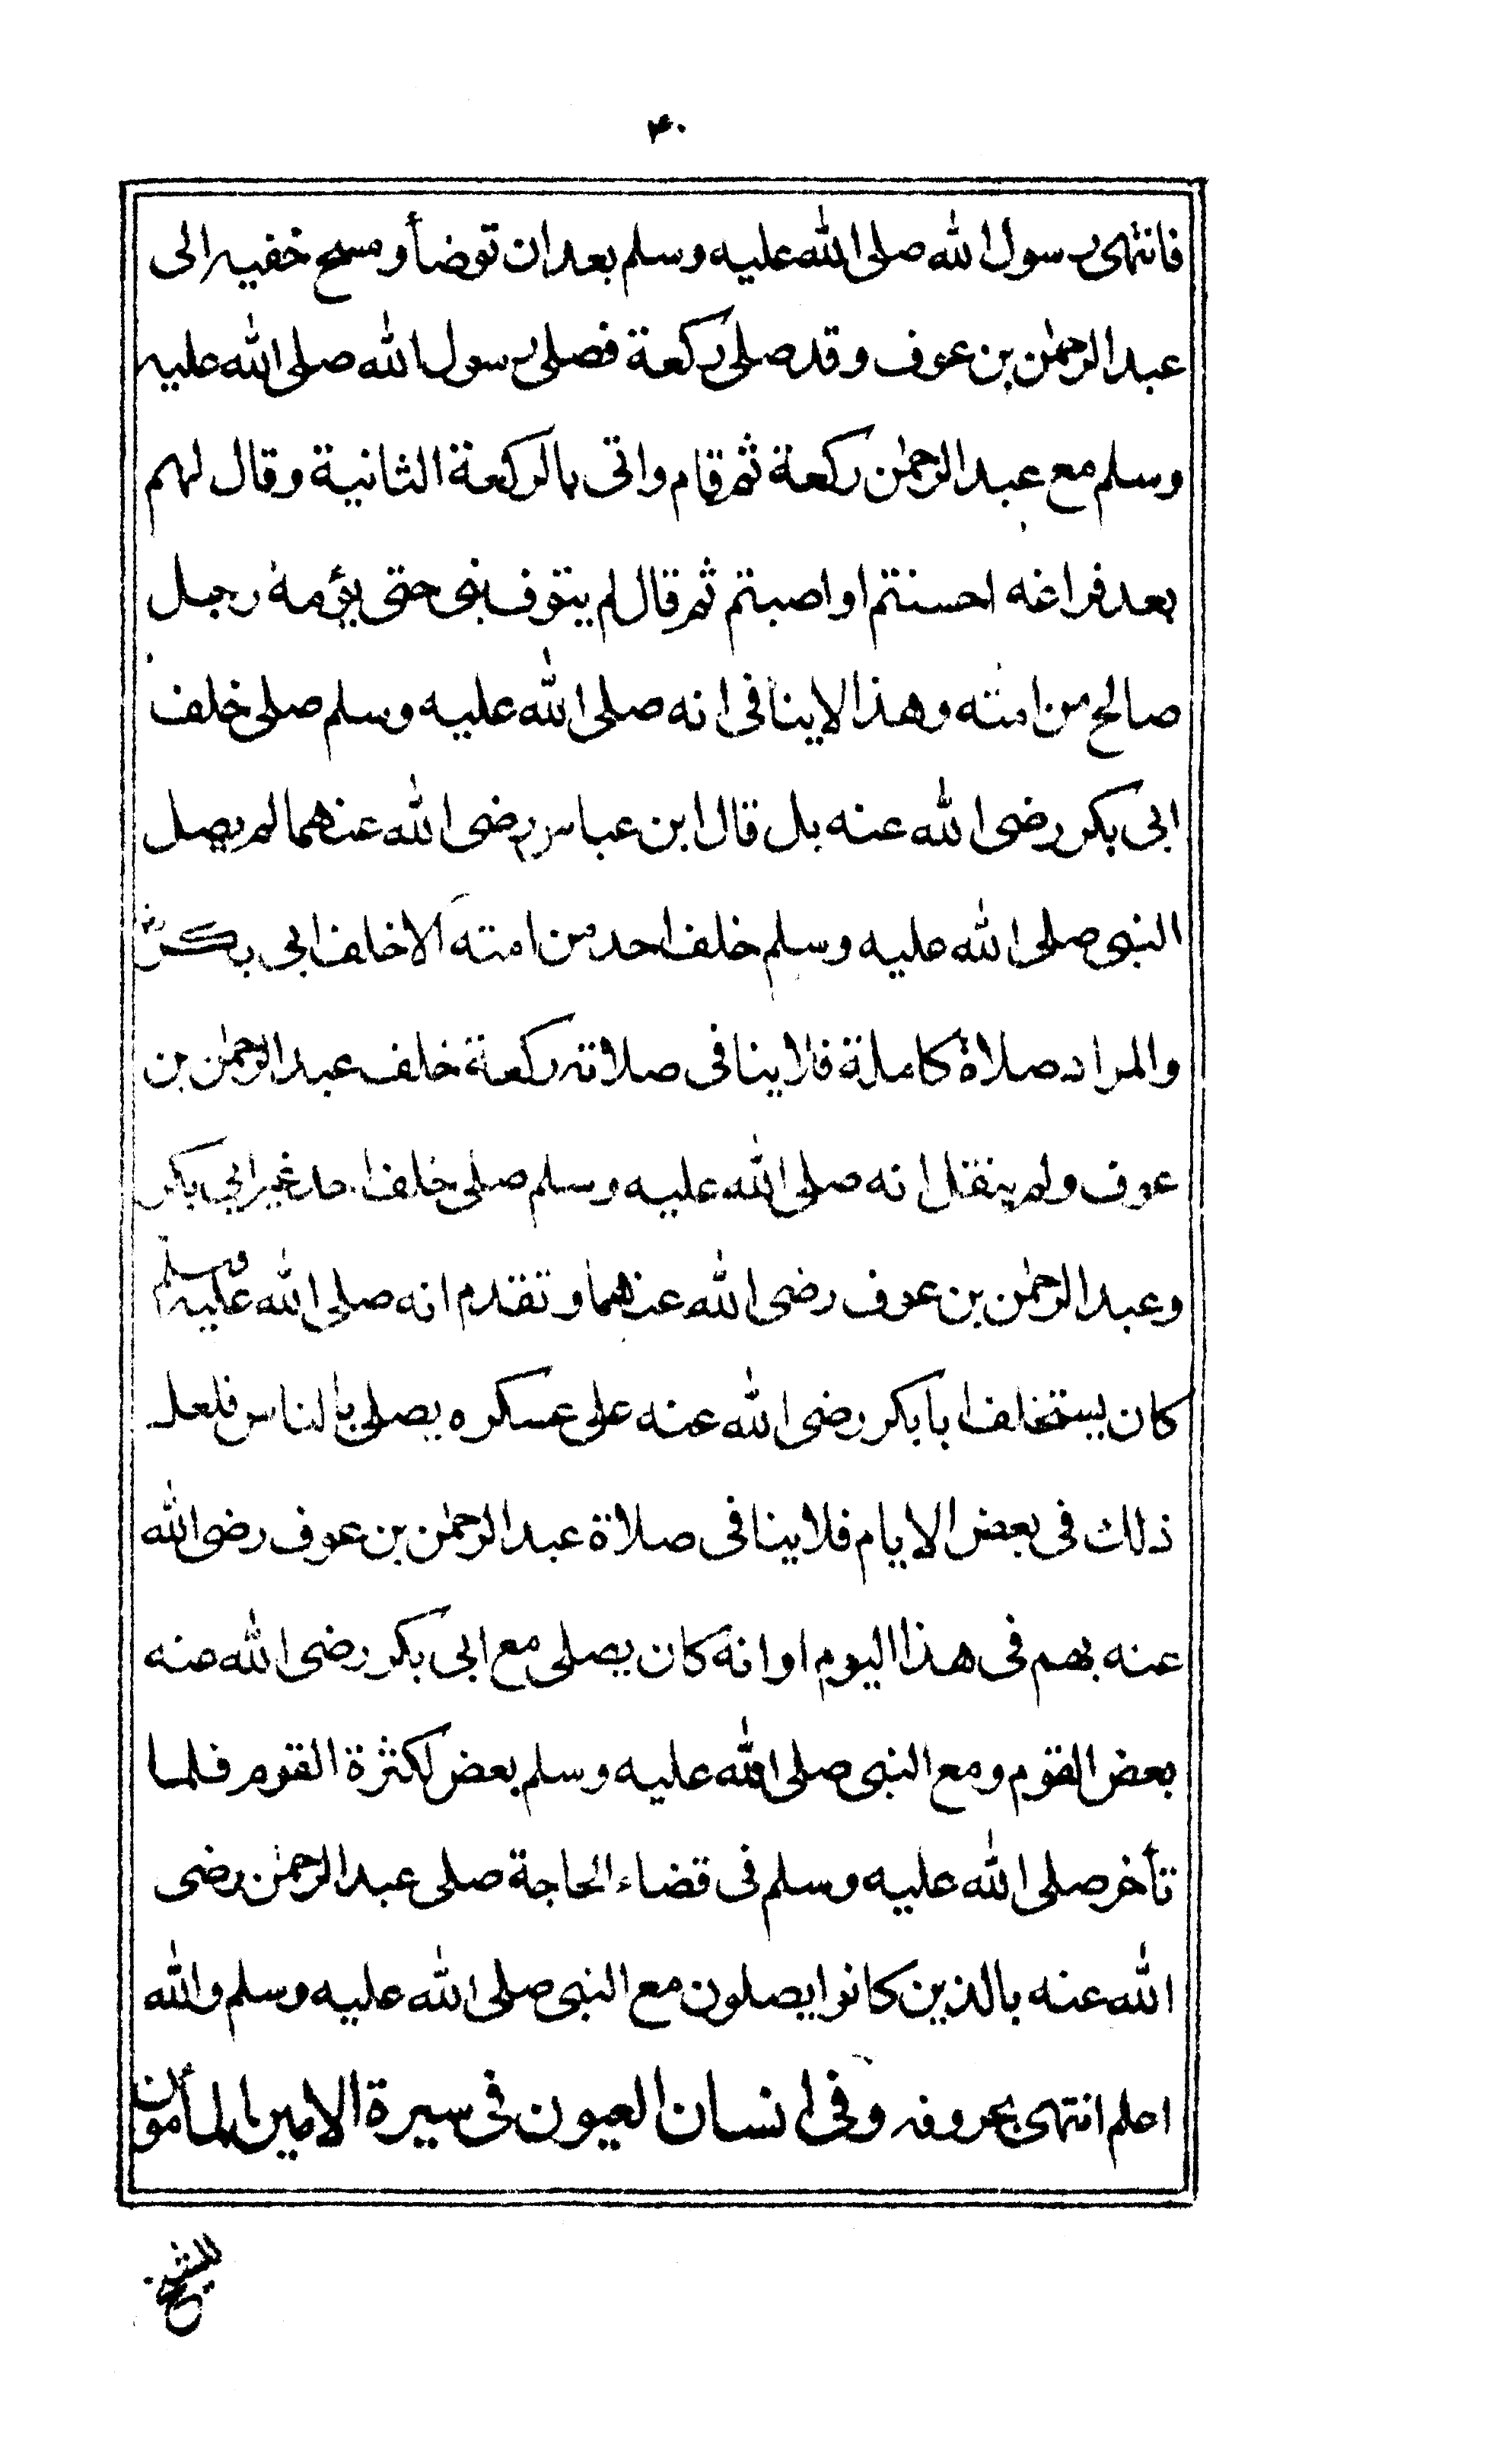 ۴۰
فانتهى رسول الله صلى الله عليه وسلم بعد ان توضأ ومسح خفيه الى
عبد الرحمٰن بن عوف وقد صلى ركعة فصلى رسول الله صلى الله عليه
وسلم مع عبد الرحمٰن ركعة ثم قام واتى بالركعة الثانية وقال لهم
بعد فراغه احسنتم او اصبتم ثم قال لم يتوف نبى حتى يؤمه رجل
صالح من امته وهذا لاينافى انه صلى الله عليه وسلم صلى خلف
ابى بكر رضى الله عنه بل قال ابن عباس رضى الله عنهما لم يصل
النبى صلى الله عليه وسلم خلف احد من امته الا خلف ابى بكرؓ
والمراد صلاة كاملة فلاينافى صلاته ركعة خلف عبد الرحمٰن بن
عوف ولم ينقل انه صلى الله عليه وسلم صلى خلف احد غير ابى بكر
وعبد الرحمٰن بن عوف رضى الله عنهما وتقدم انه صلى الله عليه وسلم
كان يستخلف ابا بكر رضى الله عنه على عسكره يصلى بالناس فلعل
ذلك فى بعض الايام فلاينافى صلاة عبد الرحمٰن بن عوف رضى الله
عنه بهم فى هذا اليوم او انه كان يصلى مع ابى بكر رضى الله عنه
بعض القوم ومع النبى صلى الله عليه وسلم بعض لكثرة القوم فلما
تأخر صلى الله عليه وسلم فى قضاء الحاجة صلى عبد الرحمٰن رضى
الله عنه بالذين كانوا يصلون مع النبى صلى الله عليه وسلم والله
اعلم انتهى بحروفه وفى انسان العيون فى سيرة الامين المأمون
للشيخ